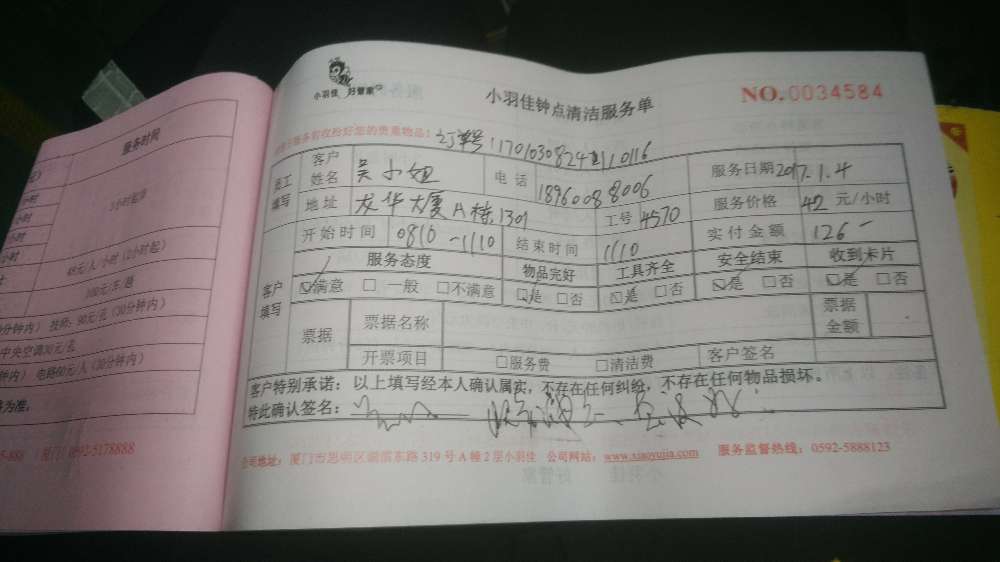 服务时间
小时
小时
小时
小时
2小时起步
40元/人/小时（2小时起）
100元/车/趟
分钟内） 技师：90元/名（30分钟内）
中央空调30元/名
钟内） 电路60元/人（30分钟内）
为准。
厦门 0592-5178888
小羽佳 好管家
小羽佳钟点清洁服务单
NO.0034584
服务前收检好您的贵重物品！ 订单号:170103082411110116
员工填写
客户姓名 吴小姐 电话 18960088006 服务日期 2017.1.4
地址 龙华大厦A栋1301 工号 4570 服务价格 42 元/小时
开始时间 0810-1110 结束时间 1110 实付金额 126-
客户填写
服务态度 物品完好 工具齐全 安全结束 收到卡片
☑满意 □一般 □不满意 ☑是 □否 ☑是 □否 ☑是 □否 ☑是 □否
票据 票据名称 票据金额
开票项目 □服务费 □清洁费 客户签名
客户特别承诺：以上填写经本人确认属实，不存在任何纠纷，不存在任何物品损坏。
特此确认签名：
公司地址：厦门市思明区湖滨东路319号A幢2层小羽佳 公司网站：www.xiaoyujia.com 服务监督热线：0592-5888123